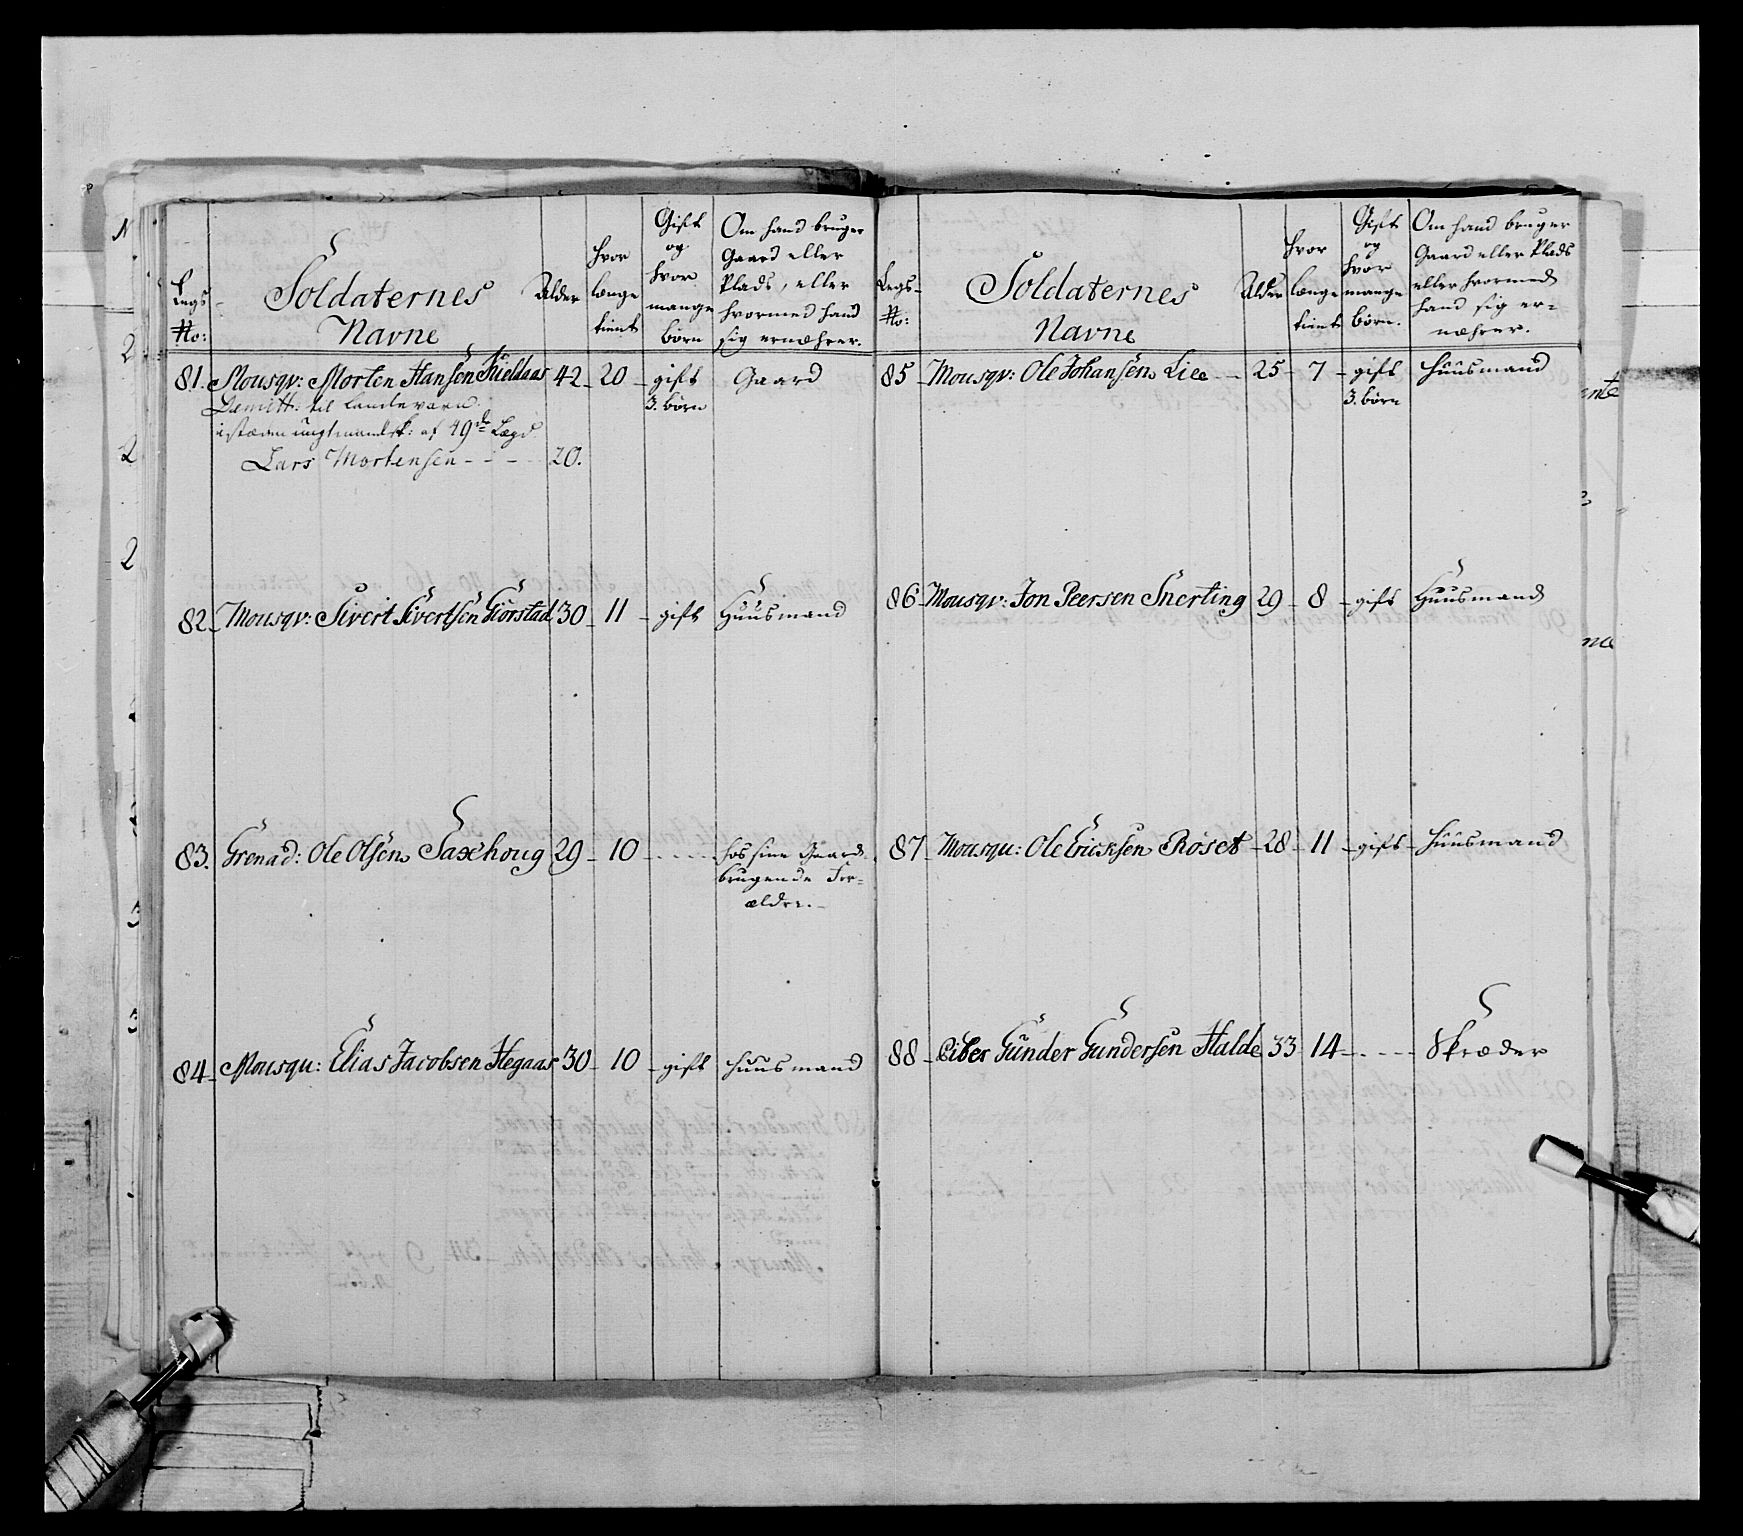 Legs No:
Soldaternes Navne
Alder
hvor længe tient
Gift og hvor mange børn
Om hand bruger Gaard eller Plads, eller hvormed hand sig ernæhrer.
81. Mousqv: Morten Hansen Kieldaas 42 - 20 - gift 3. børn Gaard
Demitt: til landeværn.
istæden ungtmandsk: af 49de Lægd
Lars Mortensen - - - - 20.
82 - Mousqv: Sivert Sivertsen Giörstad 30 - 11 - gift Huusmand
83. Grenad: Ole Olsen Saxhoug 29 - 10 - - - - - hos sine Gaard
brugende For-
ældre. -
84 - Mousqu: Elias Jacobsen Hegaas 30 - 10 - gift huusmand
Legs- No:
Soldaternes Navne
Alder
hvor længe tient
Gift og hvor mange børn.
Om hand bruger Gaard eller Plads eller hvormed hand sig er- næhrer.
85 - Mousqv: Ole Johansen Liee - - 25 - 7 - gift 3. børn huusmand
86 - Mousqv: Jon Peersen Snerting 29 - 8 - gift Huusmand
87 - Mousqu: Ole Ericksen Röset - 28 - 11 - gift - huusmand
88 - Piber Gunder Gundersen Halde 33 14 - - - - Skræder